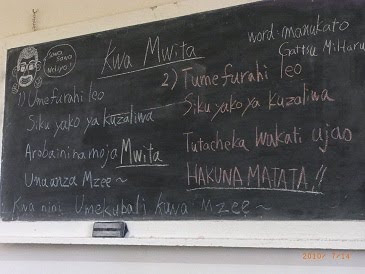 Kwa Mwita
word: manukato
Gattsu Miharu
1) Umefurahi leo
Siku yako ya kuzaliwa
Arobaini na moja Mwita
Unawaza Mzee~
2) Tumefurahi leo
Siku yako ya kuzaliwa
Tutacheka wakati ujao
HAKUNA MATATA!!
Kwa nini Umekubali kuwa Mzee~
2010/7/14